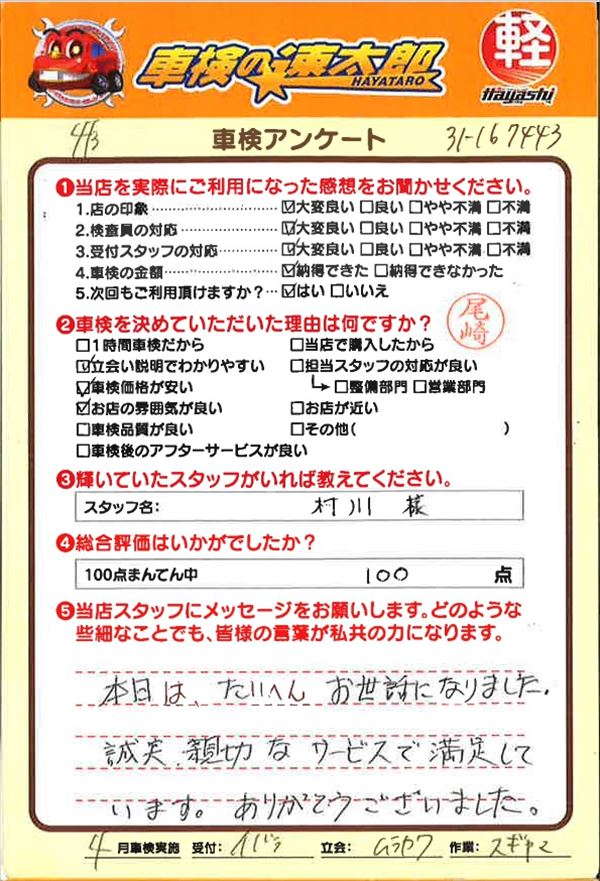 車検の速太郎
HAYATARO
軽
Hayashi
4/13
車検アンケート
31-167443
❶当店を実際にご利用になった感想をお聞かせください。
1.店の印象 ☑大変良い □良い □やや不満 □不満
2.検査員の対応 ☑大変良い □良い □やや不満 □不満
3.受付スタッフの対応 ☑大変良い □良い □やや不満 □不満
4.車検の金額 ☑納得できた □納得できなかった
5.次回もご利用頂けますか？ ☑はい □いいえ
❷車検を決めていただいた理由は何ですか？
尾崎
□1時間車検だから □当店で購入したから
☑立会い説明でわかりやすい □担当スタッフの対応が良い
☑車検価格が安い □整備部門 □営業部門
☑お店の雰囲気が良い □お店が近い
□車検品質が良い □その他( )
□車検後のアフターサービスが良い
❸輝いていたスタッフがいれば教えてください。
スタッフ名: 村川 様
❹総合評価はいかがでしたか？
100点まんてん中 100 点
❺当店スタッフにメッセージをお願いします。どのような
些細なことでも、皆様の言葉が私共の力になります。
本日は、たいへん お世話になりました。
誠実、親切な サービスで 満足して
います。ありがとうございました。
4 月車検実施 受付: イバラ 立会: ムラカワ 作業: スギヤマ